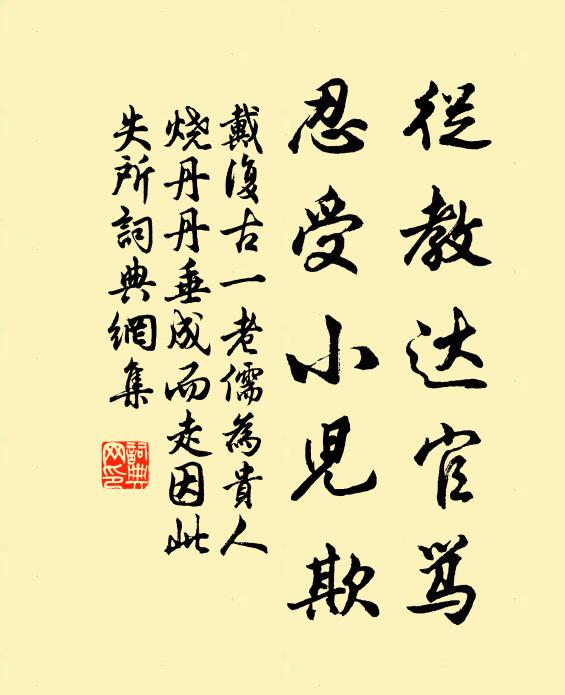 從教达官骂
忍受小兒欺
戴復古一老儒為貴人
烧丹丹垂成而走因此
失所詞典網集
詞典网印